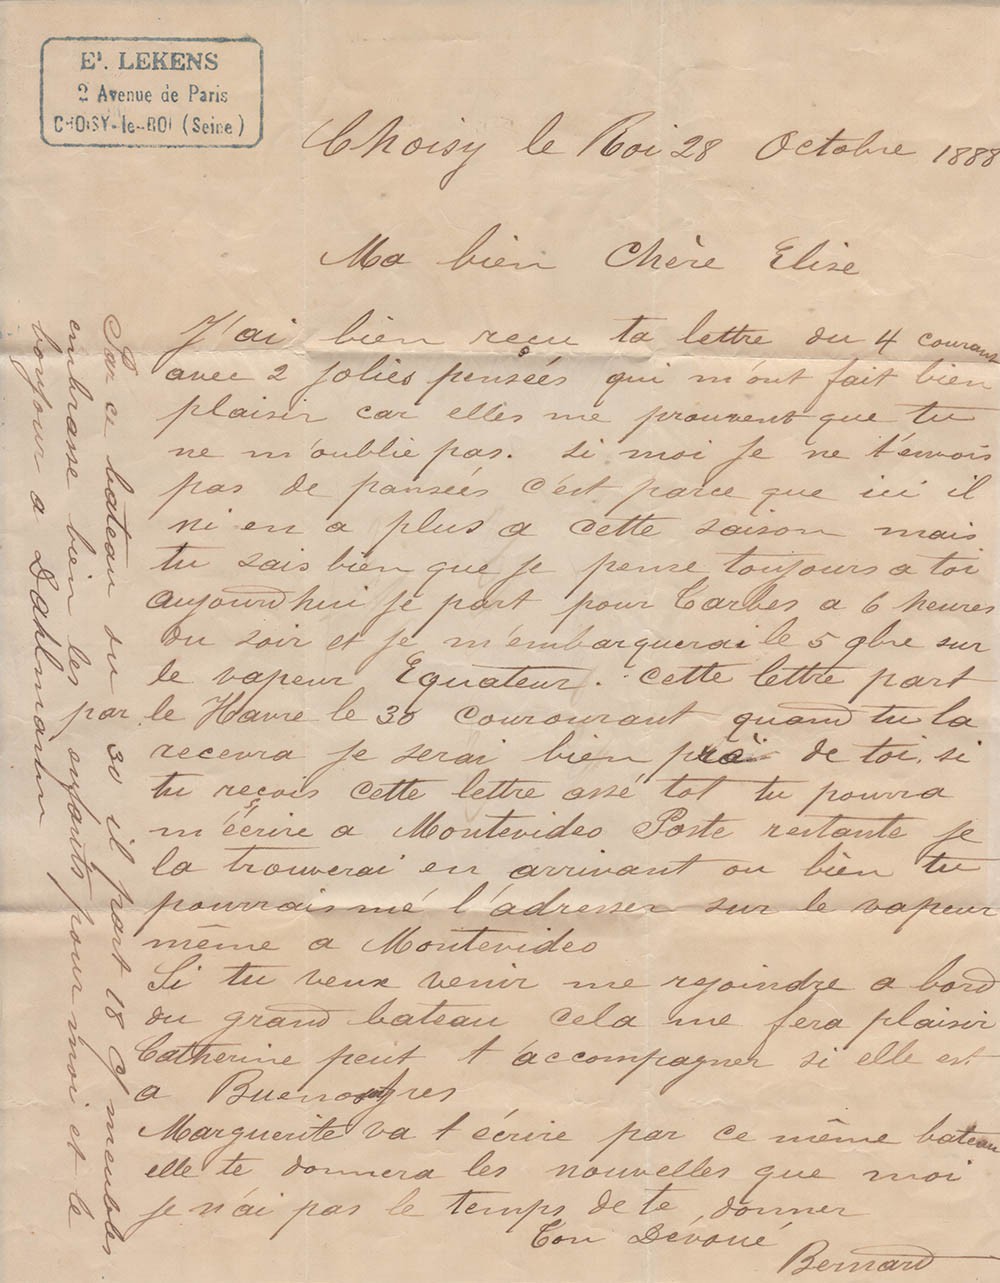 Et. LEKENS
2 Avenue de Paris
CHOISY-le-ROI (Seine)
Choisy le Roi 28 Octobre 1888
Ma bien Chère Elise
J'ai bien reçu ta lettre du 4 courant
avec 2 jolies pensées qui m'ont fait bien
plaisir car elles me prouvent que tu
ne m'oublie pas. si moi je ne t'envois
pas de pansées c'est parce que ici il
ni en a plus a cette saison mais
tu sais bien que je pense toujours a toi
aujourdhui je part pour Tarbes a 6 heures
du soir et je m'embarquerai le 5 9bre sur
le vapeur Equateur. cette lettre part
par le Havre le 30 courourant quand tu la
recevra je serai bien près de toi. si
tu reçois cette lettre assé tot tu pourra
m'écrire a Montevideo Poste restante je
la trouverai en arrivant ou bien tu
pourrais mé l'adresser sur le vapeur
même a Montevideo
Si tu veux venir me rejoindre a bord
du grand bateau cela me fera plaisir
Catherine peut t'accompagner si elle est
a Buenos Ayres
Marguerite va t'écrire par ce même bateau
elle te donnera les nouvelles que moi
je n'ai pas le temps de te donner
Ton Dévoué
Bernard
Par ce bateau du 30 il part 18 C/ meubles
embrasse bien les enfants pour moi et le
bonjour a Dahlmann